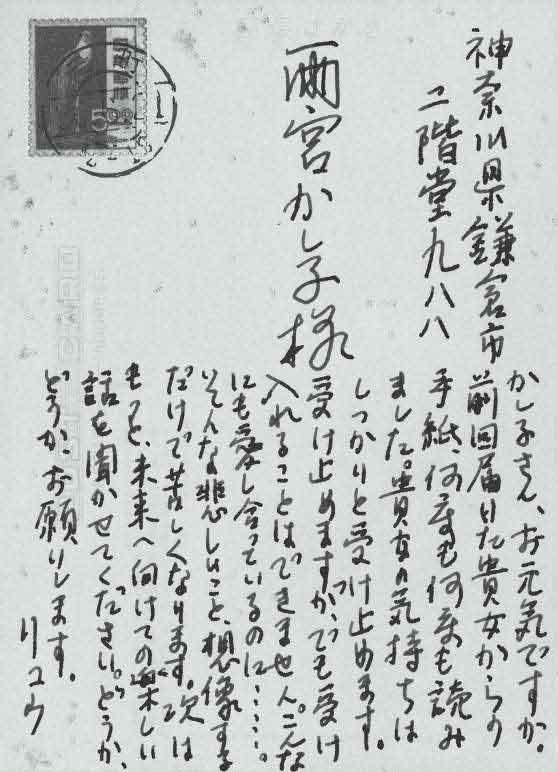 神奈川県鎌倉市
二階堂九八八
雨宮かし子様
かし子さん、お元気ですか。
前回届いた貴女からの
手紙、何度も何度も読み
ました。貴女の気持ちは
しっかりと受け止めます。
受け止めますが、でも受け
入れることはできません。こんな
にも愛し合っているのに……。
そんな悲しいこと、想像する
だけで苦しくなります。次は
もっと、未来へ向けての楽しい
話を聞かせてください。どうか、
どうか、お願いします。
リュウ
CARD